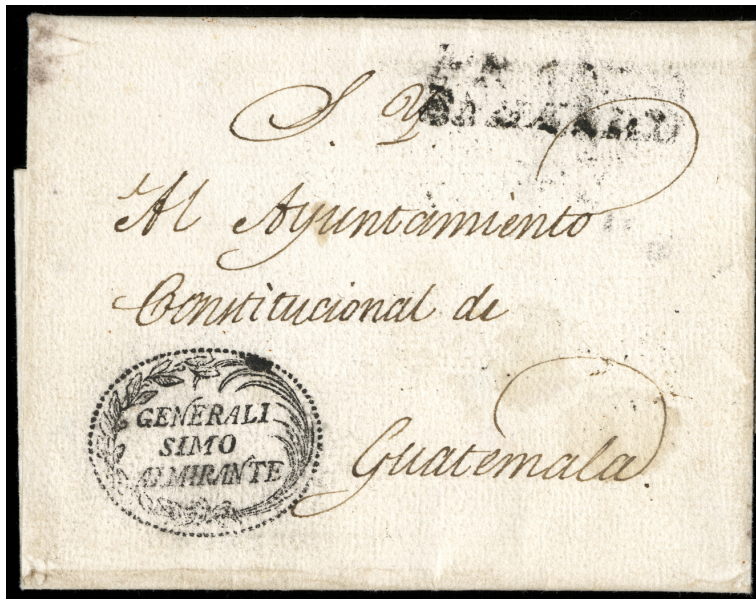 S. Y.
Al Ayuntamiento
Constitucional de
Guatemala.
GENERALI
SIMO
ALMIRANTE